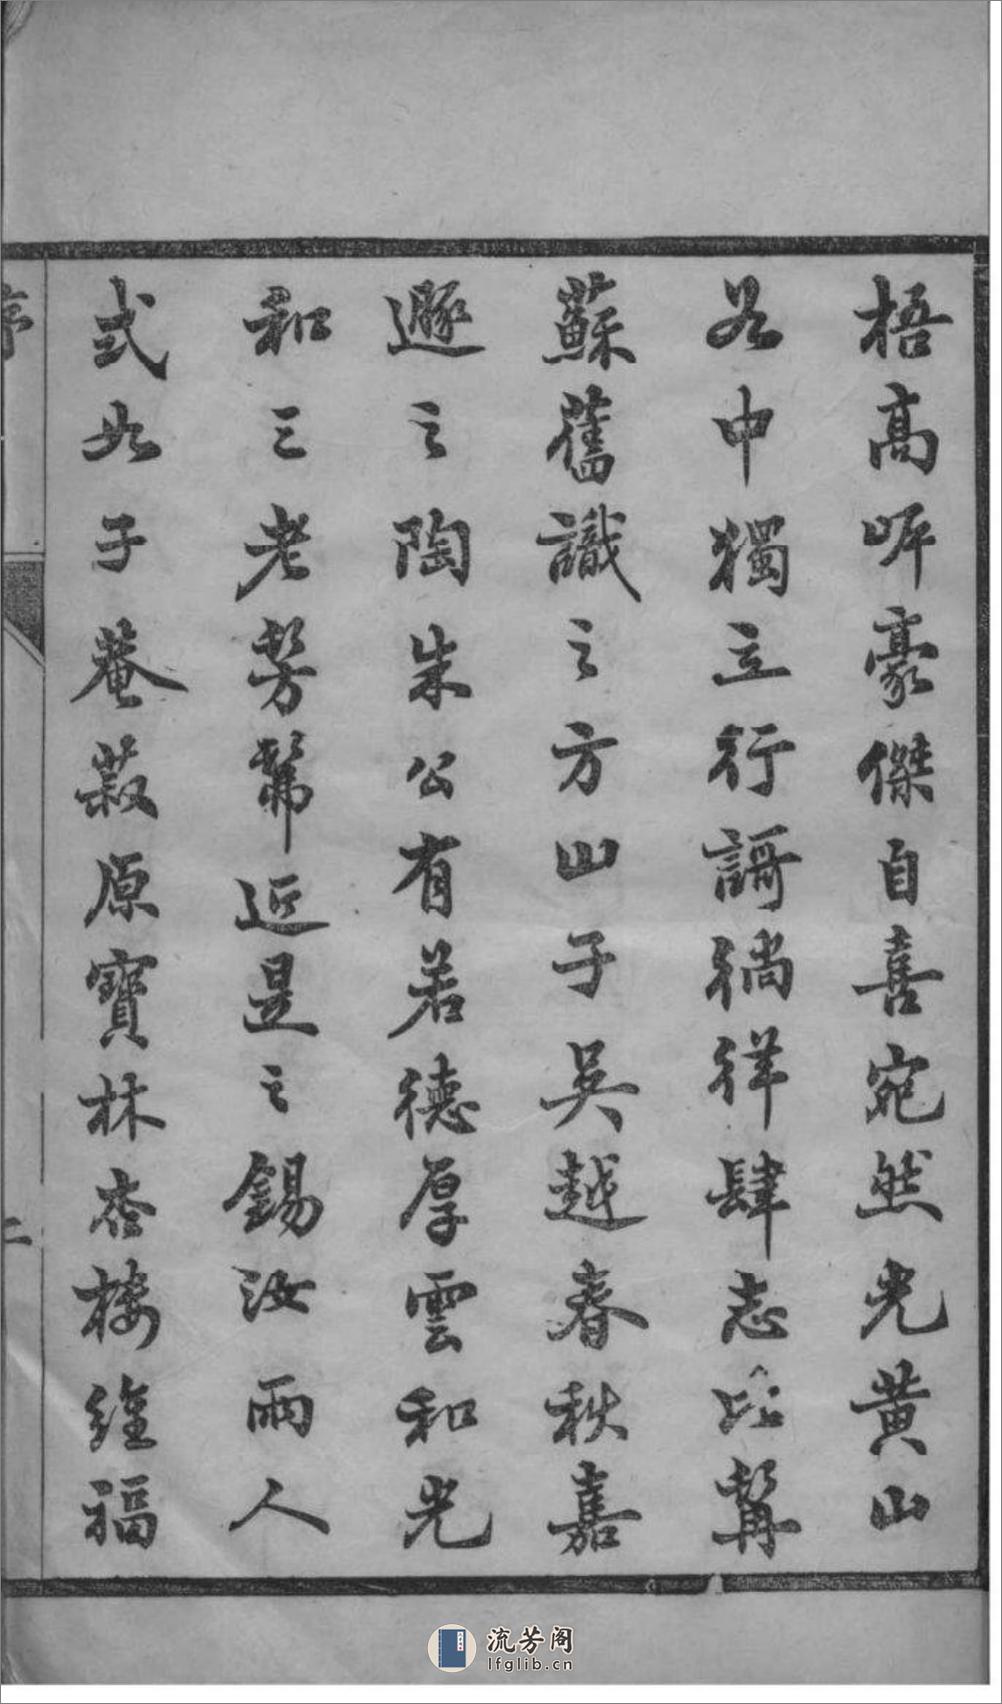 梧高呼豪傑自喜宛然光黃山
谷中獨立行謌徜徉肆志比
蘇舊識之方山子吳越春秋嘉
遯之陶朱公有若德厚雲和光
和三老芳邇是之錫汝兩人
式如子菴菽原寶林峇樓繼福
序
二
流芳阁
lfglib.cn